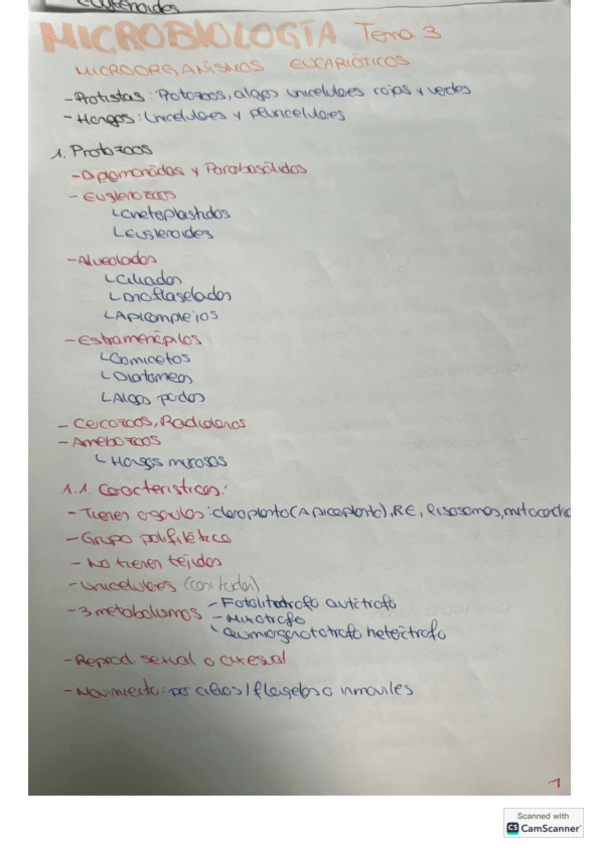 MICROBIOLOGÍA Tema 3
MICROORGANISMOS EUCARIÓTICOS
- Protistas: Protozoos, algas unicelulares rojas y verdes
- Hongos: Unicelulares y pluricelulares
1. Protozoos
- Diplomonádas y Parabasálidos
- Euglenozoos
└ Cinetoplastidos
└ Euglenoides
- Alveolados
└ Ciliados
└ Dinoflagelados
└ Apicomplejos
- Estramenópilos
└ Oomicetos
└ Diatomeas
└ Algas pardas
- Cercozoos, Radiolarios
- Amebozoos
└ Hongos mucosos
1.1. Características:
- Tienen orgánulos: cloroplasto (Apicoplasto), RE, lisosomas, mitocondria
- Grupo polifilético
- No tienen tejidos
- Unicelulares (casi todos)
- 3 metabolismos - Fotolitotrofo autótrofo
- Mixotrofo
└ Quimiorganotrofo heterótrofo
- Reprod. sexual o asexual
- Movimiento: por cilios/flagelos o inmóviles
1
Scanned with
CS CamScanner